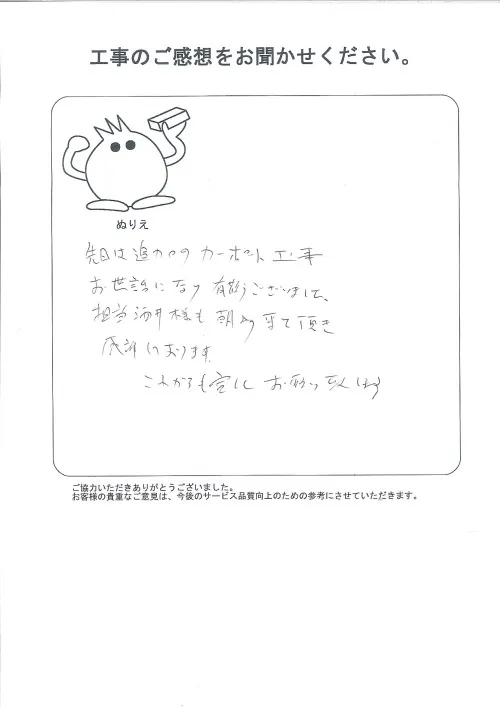 工事のご感想をお聞かせください。
ぬりえ
先日は追加のカーポート工事
お世話になり有難うございました。
担当酒井様も朝夕来て頂き
感謝しております。
これからも宜しくお願い致します
ご協力いただきありがとうございました。
お客様の貴重なご意見は、今後のサービス品質向上のための参考にさせていただきます。